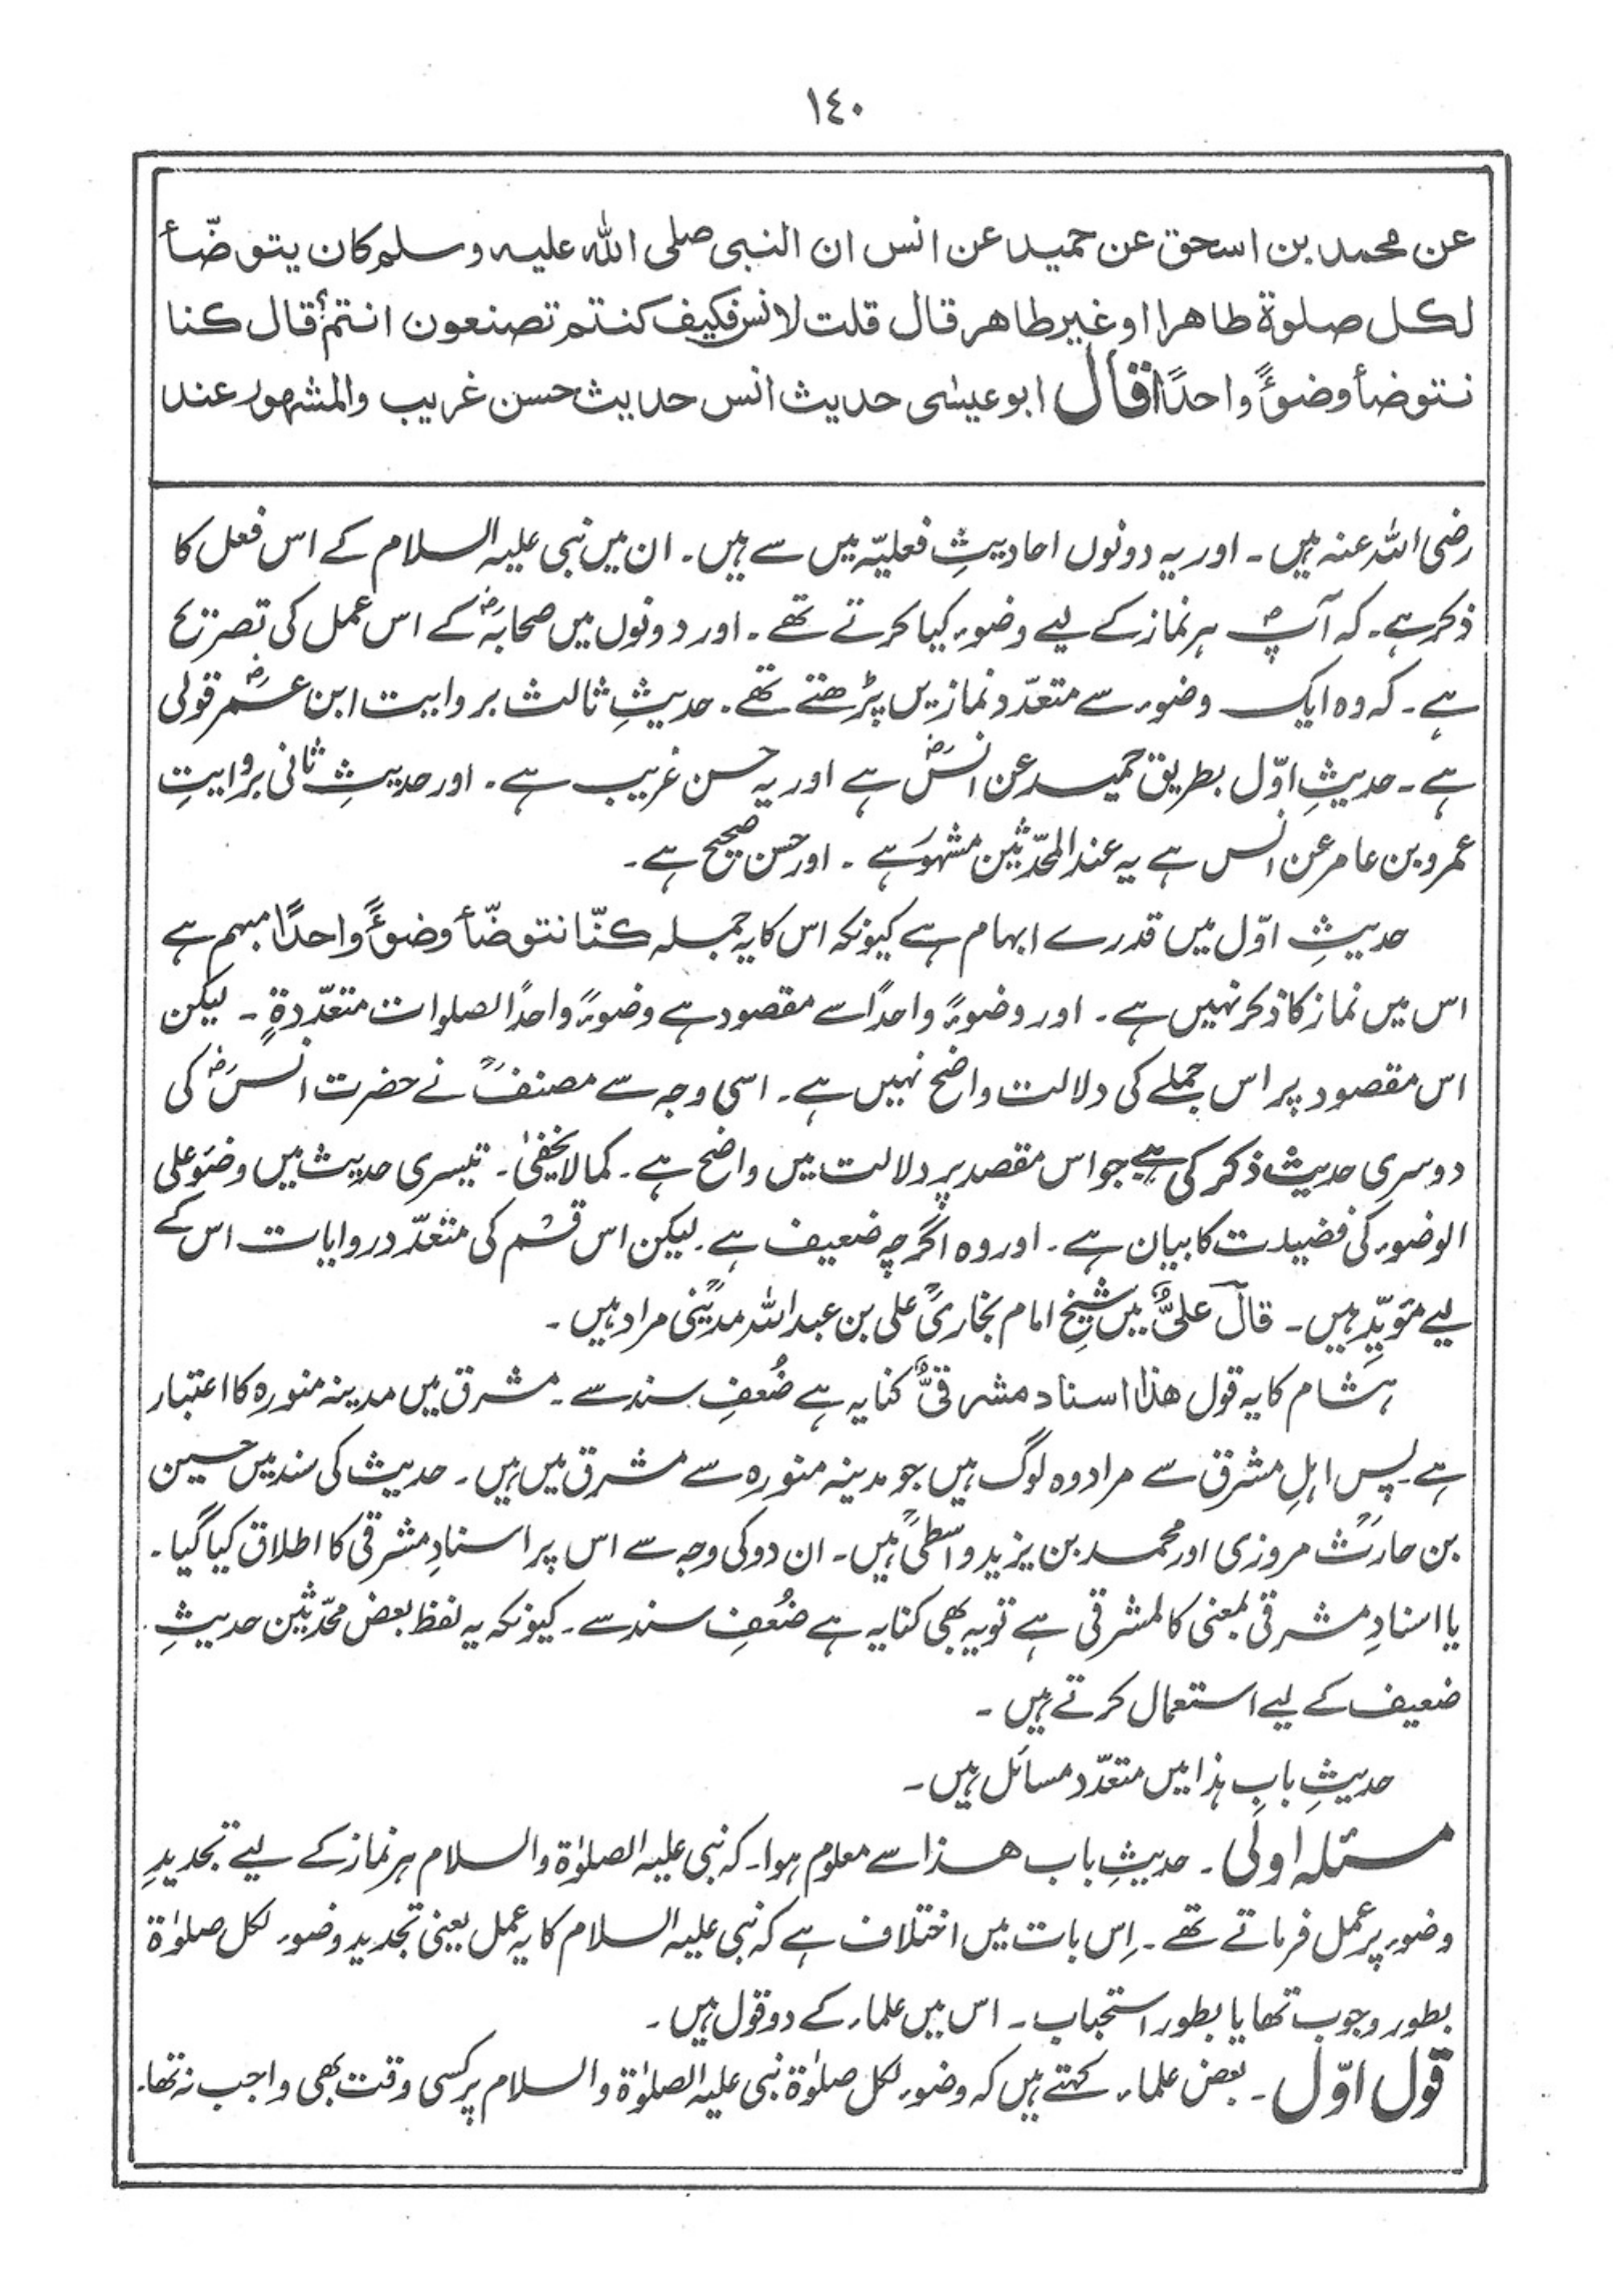 ١٤٠
عن محمد بن اسحق عن حميد عن انس ان النبى صلى الله عليه وسلم كان يتوضّأ
لكل صلوة طاهرا او غير طاهر قال قلت لانس فكيف كنتم تصنعون انتم؟ قال كنا
نتوضأ وضوءًا واحدًا قال ابو عيسى حديث انس حديث حسن غريب والمشهور عند
رضی اللہ عنہ ہیں۔ اور یہ دونوں احادیثِ فعلیّہ میں سے ہیں۔ ان میں نبی علیہ السلام کے اس فعل کا
ذکر ہے۔ کہ آپؐ ہر نماز کے لیے وضوء کیا کرتے تھے۔ اور دونوں میں صحابہؓ کے اس عمل کی تصریح
ہے۔ کہ وہ ایک وضوء سے متعدّد نمازیں پڑھتے تھے۔ حدیثِ ثالث بروایت ابن عمرؓ قولی
ہے۔ حدیثِ اوّل بطریق حمید عن انسؓ ہے اور یہ حسن غریب ہے۔ اور حدیثِ ثانی بروایتِ
عمرو بن عامر عن انس ہے یہ عند المحدّثین مشہور ہے۔ اور حسن صحیح ہے۔
حدیثِ اوّل میں قدرے ابہام ہے کیونکہ اس کا یہ جملہ کنّا نتوضّأ وضوءًا واحدًا مبہم ہے
اس میں نماز کا ذکر نہیں ہے۔ اور وضوءً واحدًا سے مقصود ہے وضوءً واحدًا لصلوات متعدّدةٍ۔ لیکن
اس مقصود پر اس جملے کی دلالت واضح نہیں ہے۔ اسی وجہ سے مصنفؒ نے حضرت انسؓ کی
دوسری حدیث ذکر کی ہے جو اس مقصد پر دلالت میں واضح ہے۔ کما لا یخفیٰ۔ تیسری حدیث میں وضوء علی
الوضوء کی فضیلت کا بیان ہے۔ اور وہ اگرچہ ضعیف ہے۔ لیکن اس قسم کی متعدّد روایات اس کے
لیے مؤیِّد ہیں۔ قال علیٌّ میں شیخِ امام بخاریؒ علی بن عبد اللہ مدینیؒ مراد ہیں۔
ہشام کا یہ قول ھذا اسناد مشرقیٌّ کنایہ ہے ضُعفِ سند سے۔ مشرق میں مدینہ منورہ کا اعتبار
ہے پس اہلِ مشرق سے مراد وہ لوگ ہیں جو مدینہ منورہ سے مشرق میں ہیں۔ حدیث کی سند میں حسین
بن حارثؒ مروزی اور محمد بن یزید واسطیؒ ہیں۔ ان دو کی وجہ سے اس پر اسنادِ مشرقی کا اطلاق کیا گیا۔
یا اسنادِ مشرقی بمعنی کالمشرقی ہے تو یہ بھی کنایہ ہے ضُعفِ سند سے۔ کیونکہ یہ لفظ بعض محدّثین حدیثِ
ضعیف کے لیے استعمال کرتے ہیں۔
حدیثِ بابِ ہٰذا میں متعدّد مسائل ہیں۔
مسئلہ اولی۔ حدیثِ باب ھذا سے معلوم ہوا۔ کہ نبی علیہ الصلوٰۃ والسلام ہر نماز کے لیے تجدیدِ
وضوء پر عمل فرماتے تھے۔ اِس بات میں اختلاف ہے کہ نبی علیہ السلام کا یہ عمل یعنی تجدیدِ وضوء لکل صلوٰۃ
بطور وجوب تھا یا بطور استحباب۔ اس میں علماء کے دو قول ہیں۔
قول اوّل۔ بعض علماء کہتے ہیں کہ وضوء لکل صلوٰۃ نبی علیہ الصلوٰۃ والسلام پر کسی وقت بھی واجب نہ تھا۔